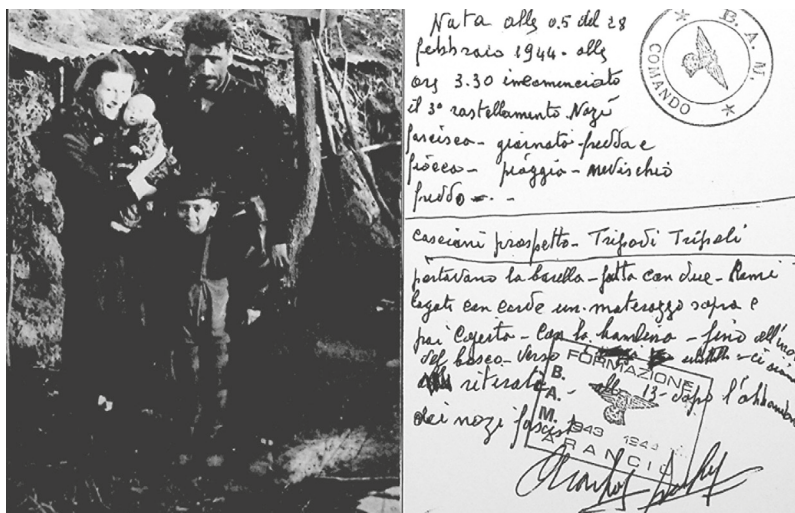 Nata alle 0.5 del 28
febbraio 1944 - alle
ore 3.30 incomenciato
il 3° rastellamento Nazi
fascisco - giornata fredda e
fiocca - pioggia - nevischio
freddo -
B. A. M.
COMANDO
casciani prospetto - Tripodi Tripoli
portavano la barella - fatta con due - Rami
legati con corde un materazzo sopra e
poi Cogesta - Con la bambina - fino all'
del bosco - verso
ritirati - 13 - dopo l'abbando
dei nazi fascisti
FORMAZIONE
B. A. M.
1943 194
ARANCIO